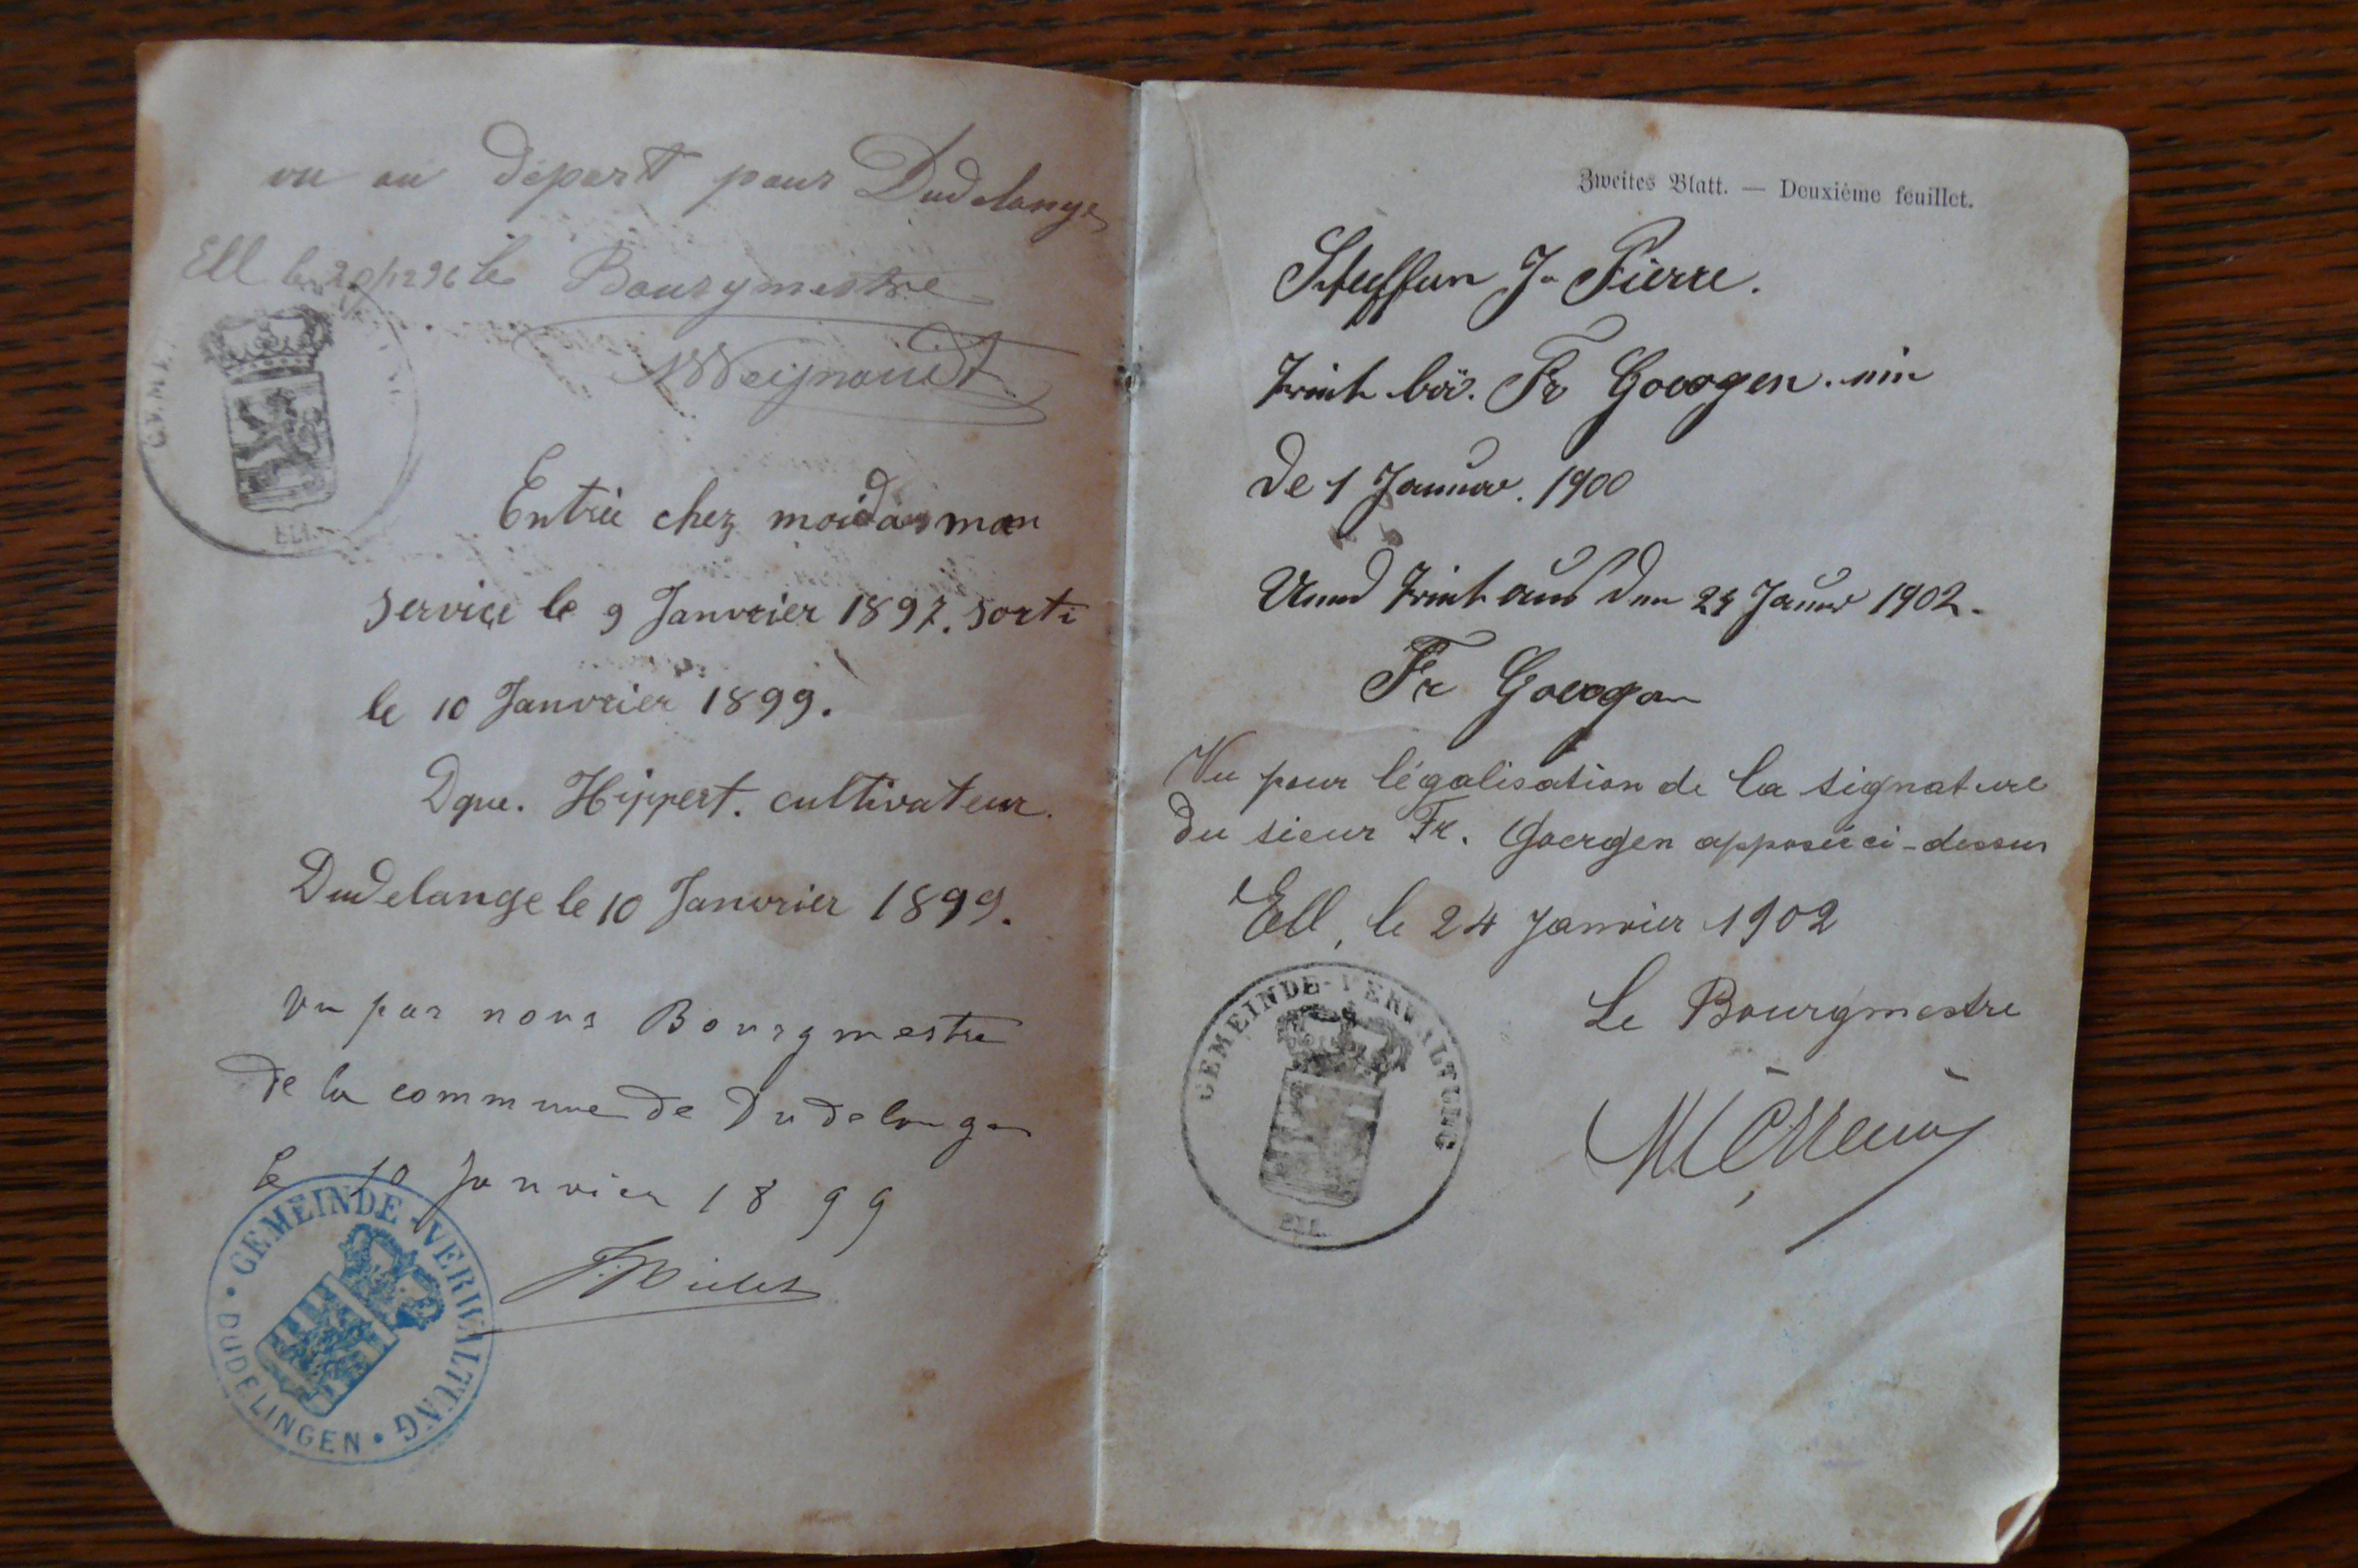 vu au départ pour Dudelange
Ell le 20/12 96 le Bourgmestre
ELL
Entrée chez moi dans mon
service le 9 Janvrier 1897. sorti
le 10 Janvrier 1899.
Dque. Hippert. cultivateur.
Dudelange le 10 Janvrier 1899.
vu par nous Bourgmestre
de la commune de Dudelange
le 10 Janvier 1899
GEMEINDE-VERWALTUNG
DUDELINGEN
Zweites Blatt. — Deuxième feuillet.
Steffen J. Pierre.
Trit bei. Fr Goergen. ein
de 1 Januar. 1900
Und Trit aus den 24 Januar 1902.
Fr Goergen
Vu pour légalisation de la signature
du sieur Fr. Goergen apposée ci-dessus
Ell, le 24 Janvier 1902
Le Bourgmestre
GEMEINDE-VERWALTUNG
ELL